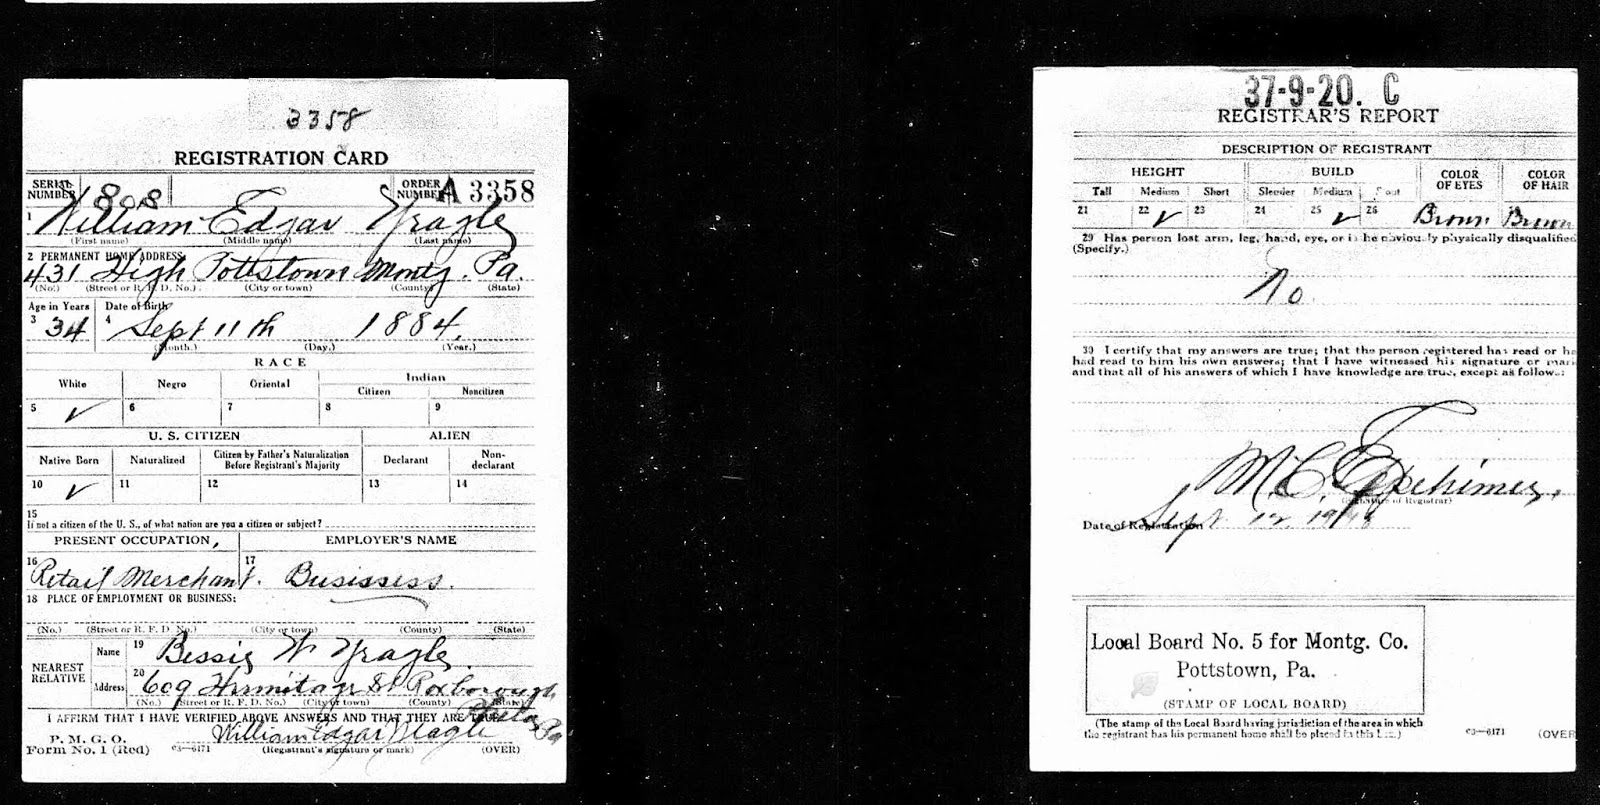 3358
REGISTRATION CARD
SERIAL NUMBER 1808 ORDER NUMBER A 3358
1 William Edgar Yeagle
(First name) (Middle name) (Last name)
2 PERMANENT HOME ADDRESS
431 High Pottstown Montg. Pa.
(No.) (Street or R. F. D. No.) (City or town) (County) (State)
Age in Years Date of Birth
3 34 4 Sept 11th 1884.
(Month.) (Day.) (Year.)
RACE
White Negro Oriental Indian
Citizen Noncitizen
5 ✓ 6 7 8 9
U. S. CITIZEN ALIEN
Native Born Naturalized Citizen by Father's Naturalization Before Registrant's Majority Declarant Non-declarant
10 ✓ 11 12 13 14
15
If not a citizen of the U. S., of what nation are you a citizen or subject?
PRESENT OCCUPATION, EMPLOYER'S NAME
16 Retail Merchant. 17 Busissess.
18 PLACE OF EMPLOYMENT OR BUSINESS:
(No.) (Street or R. F. D. No.) (City or town) (County) (State)
NEAREST RELATIVE
Name 19 Bessie W Yeagle.
Address 20 609 Hermitage St Roxborough
(No.) (Street or R. F. D. No.) (City or town) (County) (State)
Phila Pa
I AFFIRM THAT I HAVE VERIFIED ABOVE ANSWERS AND THAT THEY ARE TRUE
P. M. G. O.
Form No. 1 (Red) c3—6171 William Edgar Yeagle
(Registrant's signature or mark) (OVER)
37-9-20. C
REGISTRAR'S REPORT
DESCRIPTION OF REGISTRANT
HEIGHT BUILD COLOR OF EYES COLOR OF HAIR
Tall Medium Short Slender Medium Stout
21 22 ✓ 23 24 25 ✓ 26 Brown Brown
29 Has person lost arm, leg, hand, eye, or is he obviously physically disqualified
(Specify.)
No.
30 I certify that my answers are true; that the person registered has read or ha
had read to him his own answers; that I have witnessed his signature or mark
and that all of his answers of which I have knowledge are true, except as follows:
M. C.
(Signature of Registrar)
Date of Registration Sept 12 1918
Local Board No. 5 for Montg. Co.
Pottstown, Pa.
(STAMP OF LOCAL BOARD)
(The stamp of the Local Board having jurisdiction of the area in which
the registrant has his permanent home shall be placed in this box.)
c3—6171 (OVER